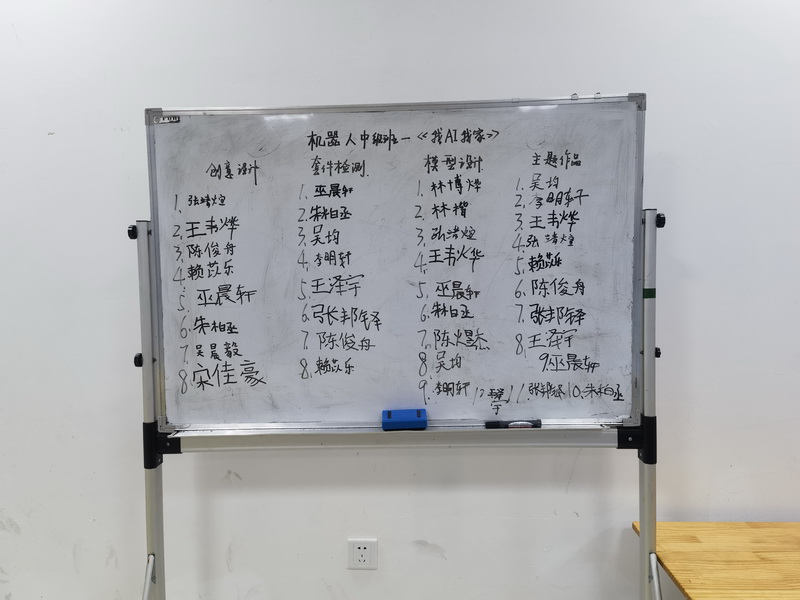 机器人中级班—《找AI找家》
创意设计
1. 张绪煌
2. 王韦烨
3. 陈俊舟
4. 赖苡乐
5. 巫晨轩
6. 朱柏丞
7. 吴晨毅
8. 宋佳豪
套件检测
1. 巫晨轩
2. 朱柏丞
3. 吴均
4. 李明轩
5. 王泽宇
6. 张邦铎
7. 陈俊舟
8. 赖苡乐
模型设计
1. 林博烨
2. 林楷
3. 张绪煌
4. 王韦烨
5. 巫晨轩
6. 朱柏丞
7. 陈煜杰
8. 吴均
9. 李明轩
12. 王泽宇
11. 张邦铎
10. 朱柏丞
主题作品
1. 吴均
2. 李明轩
3. 王韦烨
4. 张绪煌
5. 赖苡乐
6. 陈俊舟
7. 张邦铎
8. 王泽宇
9. 巫晨轩